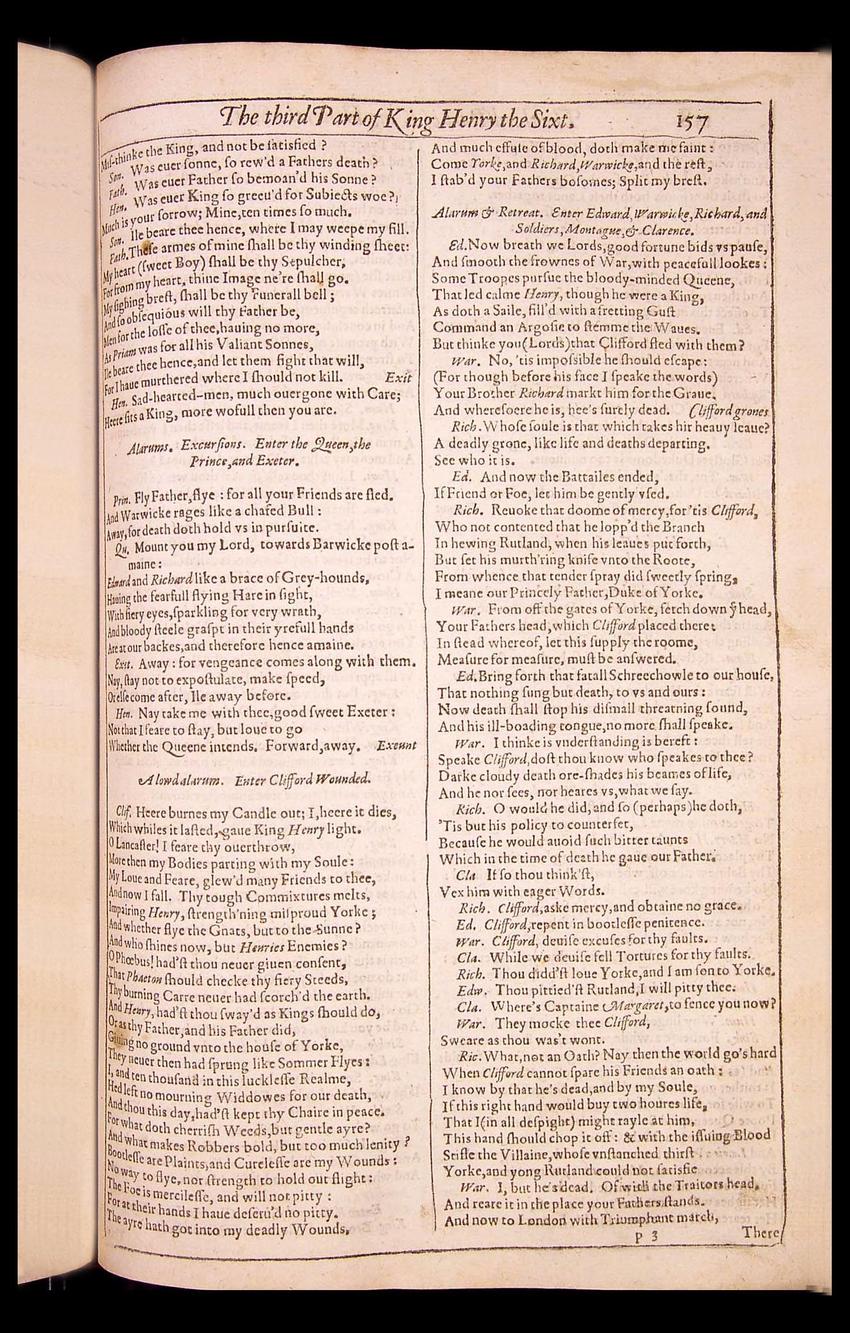 The third Part of King Henry the Sixt.	157
Mis-thinke the King, and not be satisfied ?
Son. Was euer sonne, so rew'd a Fathers death ?
Fath. Was euer Father so bemoan'd his Sonne ?
Hen. Was euer King so greeu'd for Subiects woe ?
Much is your sorrow; Mine, ten times so much.
Son. Ile beare thee hence, where I may weepe my fill.
Fath. These armes of mine shall be thy winding sheet:
My heart (sweet Boy) shall be thy Sepulcher,
For from my heart, thine Image ne're shall go.
My sighing brest, shall be thy Funerall bell ;
And so obsequious will thy Father be,
Men for the losse of thee, hauing no more,
As Priam was for all his Valiant Sonnes,
Ile beare thee hence, and let them fight that will,
For I haue murthered where I should not kill.	Exit
Hen. Sad-hearted-men, much ouergone with Care;
Heere sits a King, more wofull then you are.
Alarums. Excursions. Enter the Queen, the
Prince, and Exeter.
Prin. Fly Father, flye : for all your Friends are fled.
And Warwicke rages like a chafed Bull :
Away, for death doth hold vs in pursuite.
Qu. Mount you my Lord, towards Barwicke post a-
maine :
Edward and Richard like a brace of Grey-hounds,
Hauing the fearfull flying Hare in sight,
With fiery eyes, sparkling for very wrath,
And bloody steele graspt in their yrefull hands
Are at our backes, and therefore hence amaine.
Exet. Away : for vengeance comes along with them.
Nay, stay not to expostulate, make speed,
Or else come after, Ile away before.
Hen. Nay take me with thee, good sweet Exeter :
Not that I feare to stay, but loue to go
Whether the Queene intends. Forward, away.	Exeunt
A lowd alarum. Enter Clifford Wounded.
Clif. Heere burnes my Candle out; I, heere it dies,
Which whiles it lasted, gaue King Henry light.
O Lancaster! I feare thy ouerthrow,
More then my Bodies parting with my Soule :
My Loue and Feare, glew'd many Friends to thee,
And now I fall. Thy tough Commixtures melts,
Impairing Henry, strength'ning misproud Yorke ;
And whether flye the Gnats, but to the Sunne ?
And who shines now, but Henries Enemies ?
O Phœbus! had'st thou neuer giuen consent,
That Phaeton should checke thy fiery Steeds,
Thy burning Carre neuer had scorch'd the earth.
And Henry, had'st thou sway'd as Kings should do,
Or as thy Father, and his Father did,
Giuing no ground vnto the house of Yorke,
They neuer then had sprung like Sommer Flyes :
I, and ten thousand in this lucklesse Realme,
Hed left no mourning Widdowes for our death,
And thou this day, had'st kept thy Chaire in peace.
For what doth cherrish Weeds, but gentle ayre?
And what makes Robbers bold, but too much lenity ?
Bootlesse are Plaints, and Curelesse are my Wounds :
No way to flye, nor strength to hold out flight :
The Foe is mercilesse, and will not pitty :
For at their hands I haue deseru'd no pitty.
The ayre hath got into my deadly Wounds,
And much effuse of blood, doth make me faint :
Come Yorke, and Richard, Warwicke, and the rest,
I stab'd your Fathers bosomes; Split my brest.
Alarum & Retreat. Enter Edward, Warwicke, Richard, and
Soldiers, Montague, & Clarence.
Ed. Now breath we Lords, good fortune bids vs pause,
And smooth the frownes of War, with peacefull lookes :
Some Troopes pursue the bloody-minded Queene,
That led calme Henry, though he were a King,
As doth a Saile, fill'd with a fretting Gust
Command an Argosie to stemme the Waues.
But thinke you (Lords) that Clifford fled with them?
War. No, 'tis impossible he should escape :
(For though before his face I speake the words)
Your Brother Richard markt him for the Graue.
And wheresoere he is, hee's surely dead.	Clifford grones
Rich. Whose soule is that which takes hir heauy leaue?
A deadly grone, like life and deaths departing.
See who it is.
Ed. And now the Battailes ended,
If Friend or Foe, let him be gently vsed.
Rich. Reuoke that doome of mercy, for 'tis Clifford,
Who not contented that he lopp'd the Branch
In hewing Rutland, when his leaues put forth,
But set his murth'ring knife vnto the Roote,
From whence that tender spray did sweetly spring,
I meane our Princely Father, Duke of Yorke.
War. From off the gates of Yorke, fetch down ẏ head,
Your Fathers head, which Clifford placed there:
In stead whereof, let this supply the roome,
Measure for measure, must be answered.
Ed. Bring forth that fatall Schreechowle to our house,
That nothing sung but death, to vs and ours :
Now death shall stop his dismall threatning sound,
And his ill-boading tongue, no more shall speake.
War. I thinke is vnderstanding is bereft :
Speake Clifford, dost thou know who speakes to thee ?
Darke cloudy death ore-shades his beames of life,
And he nor sees, nor heares vs, what we say.
Rich. O would he did, and so (perhaps) he doth,
'Tis but his policy to counterfet,
Because he would auoid such bitter taunts
Which in the time of death he gaue our Father.
Cla If so thou think'st,
Vex him with eager Words.
Rich. Clifford, aske mercy, and obtaine no grace.
Ed. Clifford, repent in bootlesse penitence.
War. Clifford, deuise excuses for thy faults.
Cla. While we deuise fell Tortures for thy faults.
Rich. Thou didd'st loue Yorke, and I am son to Yorke.
Edw. Thou pittied'st Rutland, I will pitty thee.
Cla. Where's Captaine Margaret, to fence you now?
War. They mocke thee Clifford,
Sweare as thou was't wont.
Ric. What, not an Oath? Nay then the world go's hard
When Clifford cannot spare his Friends an oath :
I know by that he's dead, and by my Soule,
If this right hand would buy two houres life,
That I (in all despight) might rayle at him,
This hand should chop it off : & with the issuing Blood
Stifle the Villaine, whose vnstanched thirst
Yorke, and yong Rutland could not satisfie
War. I, but he's dead. Of with the Traitors head,
And reare it in the place your Fathers stands.
And now to London with Triumphant march,
P 3	There